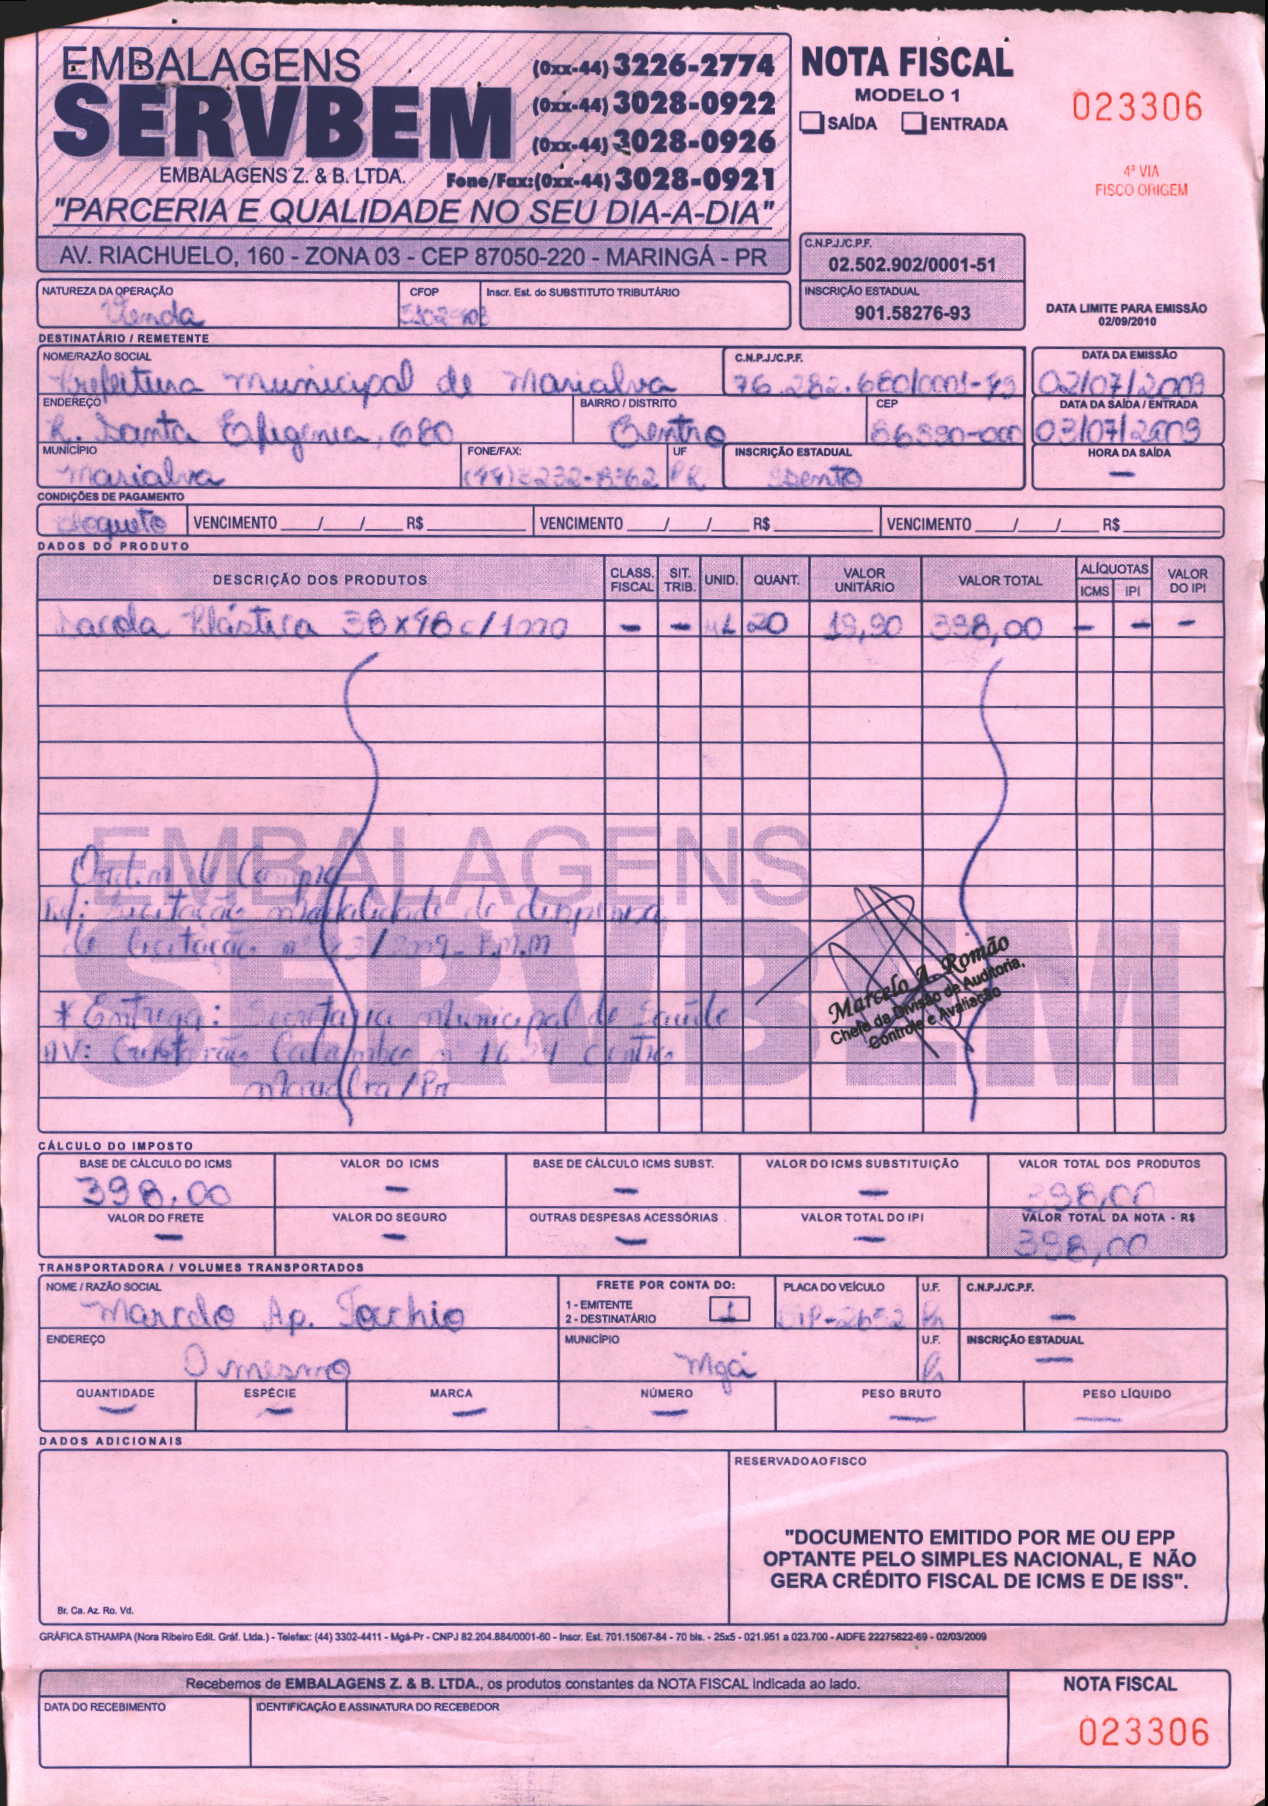 EMBALAGENS
SERVBEM
EMBALAGENS Z. & B. LTDA.
"PARCERIA E QUALIDADE NO SEU DIA-A-DIA"
(0xx-44) 3226-2774
(0xx-44) 3028-0922
(0xx-44) 3028-0926
Fone/Fax: (0xx-44) 3028-0921
AV. RIACHUELO, 160 - ZONA 03 - CEP 87050-220 - MARINGÁ - PR
NOTA FISCAL
MODELO 1
SAÍDA ENTRADA
023306
4ª VIA
FISCO ORIGEM
C.N.P.J./C.P.F.
02.502.902/0001-51
INSCRIÇÃO ESTADUAL
901.58276-93
DATA LIMITE PARA EMISSÃO
02/09/2010
NATUREZA DA OPERAÇÃO CFOP Inscr. Est. do SUBSTITUTO TRIBUTÁRIO
Venda
DESTINATÁRIO / REMETENTE
NOME/RAZÃO SOCIAL C.N.P.J./C.P.F. DATA DA EMISSÃO
Prefeitura Municipal de Marialva 76.282.680/0001-49 02/07/2009
ENDEREÇO BAIRRO / DISTRITO CEP DATA DA SAÍDA / ENTRADA
R. Santa Efigênia, 680 Centro 86990-000 03/07/2009
MUNICÍPIO FONE/FAX: UF INSCRIÇÃO ESTADUAL HORA DA SAÍDA
Marialva (44) 3232-8362 PR Isento -
CONDIÇÕES DE PAGAMENTO
VENCIMENTO ____/____/____ R$ ________ VENCIMENTO ____/____/____ R$ ________ VENCIMENTO ____/____/____ R$ ________
DADOS DO PRODUTO
DESCRIÇÃO DOS PRODUTOS CLASS. FISCAL SIT. TRIB. UNID. QUANT. VALOR UNITÁRIO VALOR TOTAL ALÍQUOTAS ICMS IPI VALOR DO IPI
Sacola Plástica 38x48 c/1000 - - ML 20 19,90 398,00 - - -
EMBALAGENS
SERVBEM
Ordem de Compra
Ref: Licitação modalidade de dispensa
de licitação nº /2009 - P.M.M
* Entrega: Secretaria Municipal de Saúde
AV: Cristovão Colombo nº Centro
Marialva/Pr
Marcelo A. Romão
Chefe da Divisão de Auditoria,
Controle e Avaliação
CÁLCULO DO IMPOSTO
BASE DE CÁLCULO DO ICMS VALOR DO ICMS BASE DE CÁLCULO ICMS SUBST. VALOR DO ICMS SUBSTITUIÇÃO VALOR TOTAL DOS PRODUTOS
398,00 - - - 398,00
VALOR DO FRETE VALOR DO SEGURO OUTRAS DESPESAS ACESSÓRIAS VALOR TOTAL DO IPI VALOR TOTAL DA NOTA - R$
- - - - 398,00
TRANSPORTADORA / VOLUMES TRANSPORTADOS
NOME / RAZÃO SOCIAL FRETE POR CONTA DO: PLACA DO VEÍCULO U.F. C.N.P.J./C.P.F.
1 - EMITENTE
2 - DESTINATÁRIO
1
Marcelo Ap. Pr -
ENDEREÇO MUNICÍPIO U.F. INSCRIÇÃO ESTADUAL
O mesmo Mgá Pr -
QUANTIDADE ESPÉCIE MARCA NÚMERO PESO BRUTO PESO LÍQUIDO
- - - - - -
DADOS ADICIONAIS
RESERVADO AO FISCO
"DOCUMENTO EMITIDO POR ME OU EPP
OPTANTE PELO SIMPLES NACIONAL, E NÃO
GERA CRÉDITO FISCAL DE ICMS E DE ISS".
Br. Ca. Az. Ro. Vd.
GRÁFICA STHAMPA (Nora Ribeiro Edit. Gráf. Ltda.) - Telefax: (44) 3302-4411 - Mgá-Pr - CNPJ 82.204.884/0001-60 - Inscr. Est. 701.15067-84 - 70 bls. - 25x5 - 021.951 a 023.700 - AIDFE 22275622-69 - 02/03/2009
Recebemos de EMBALAGENS Z. & B. LTDA., os produtos constantes da NOTA FISCAL indicada ao lado.
DATA DO RECEBIMENTO IDENTIFICAÇÃO E ASSINATURA DO RECEBEDOR
NOTA FISCAL
023306